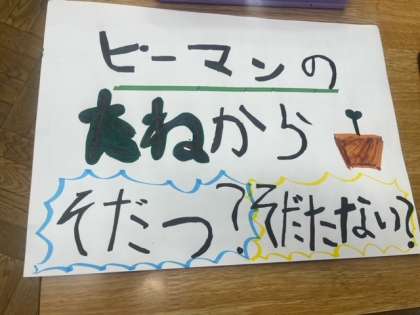 ピーマンの
たねから
そだつ? そだたない?